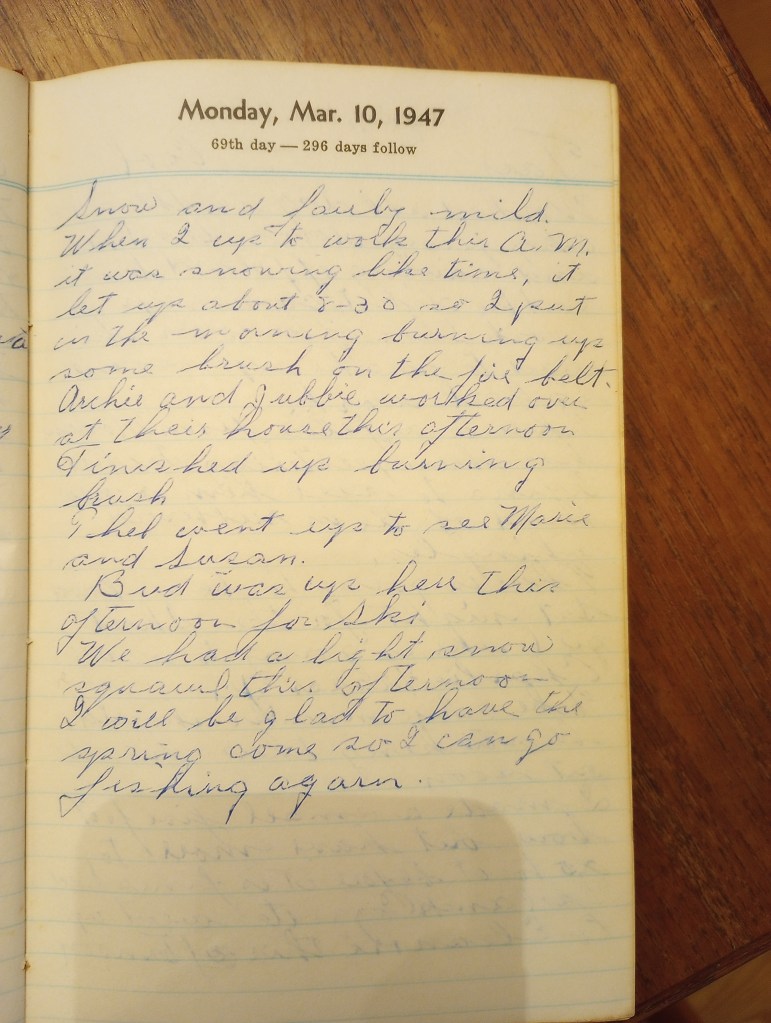 Monday, Mar. 10, 1947
69th day — 296 days follow
Snow and fairly mild.
When I up to work this A.M.
it was snowing like time, it
let up about 8-30 so I put
in the morning burning up
some brush on the fire belt.
Archie and Jubbie worked over
at their house this afternoon
Finished up burning
brush
Thel went up to see Marie
and Susan.
Bud was up here this
afternoon for Ski
We had a light snow
squawl this afternoon
I will be glad to have the
spring come so I can go
fishing again.